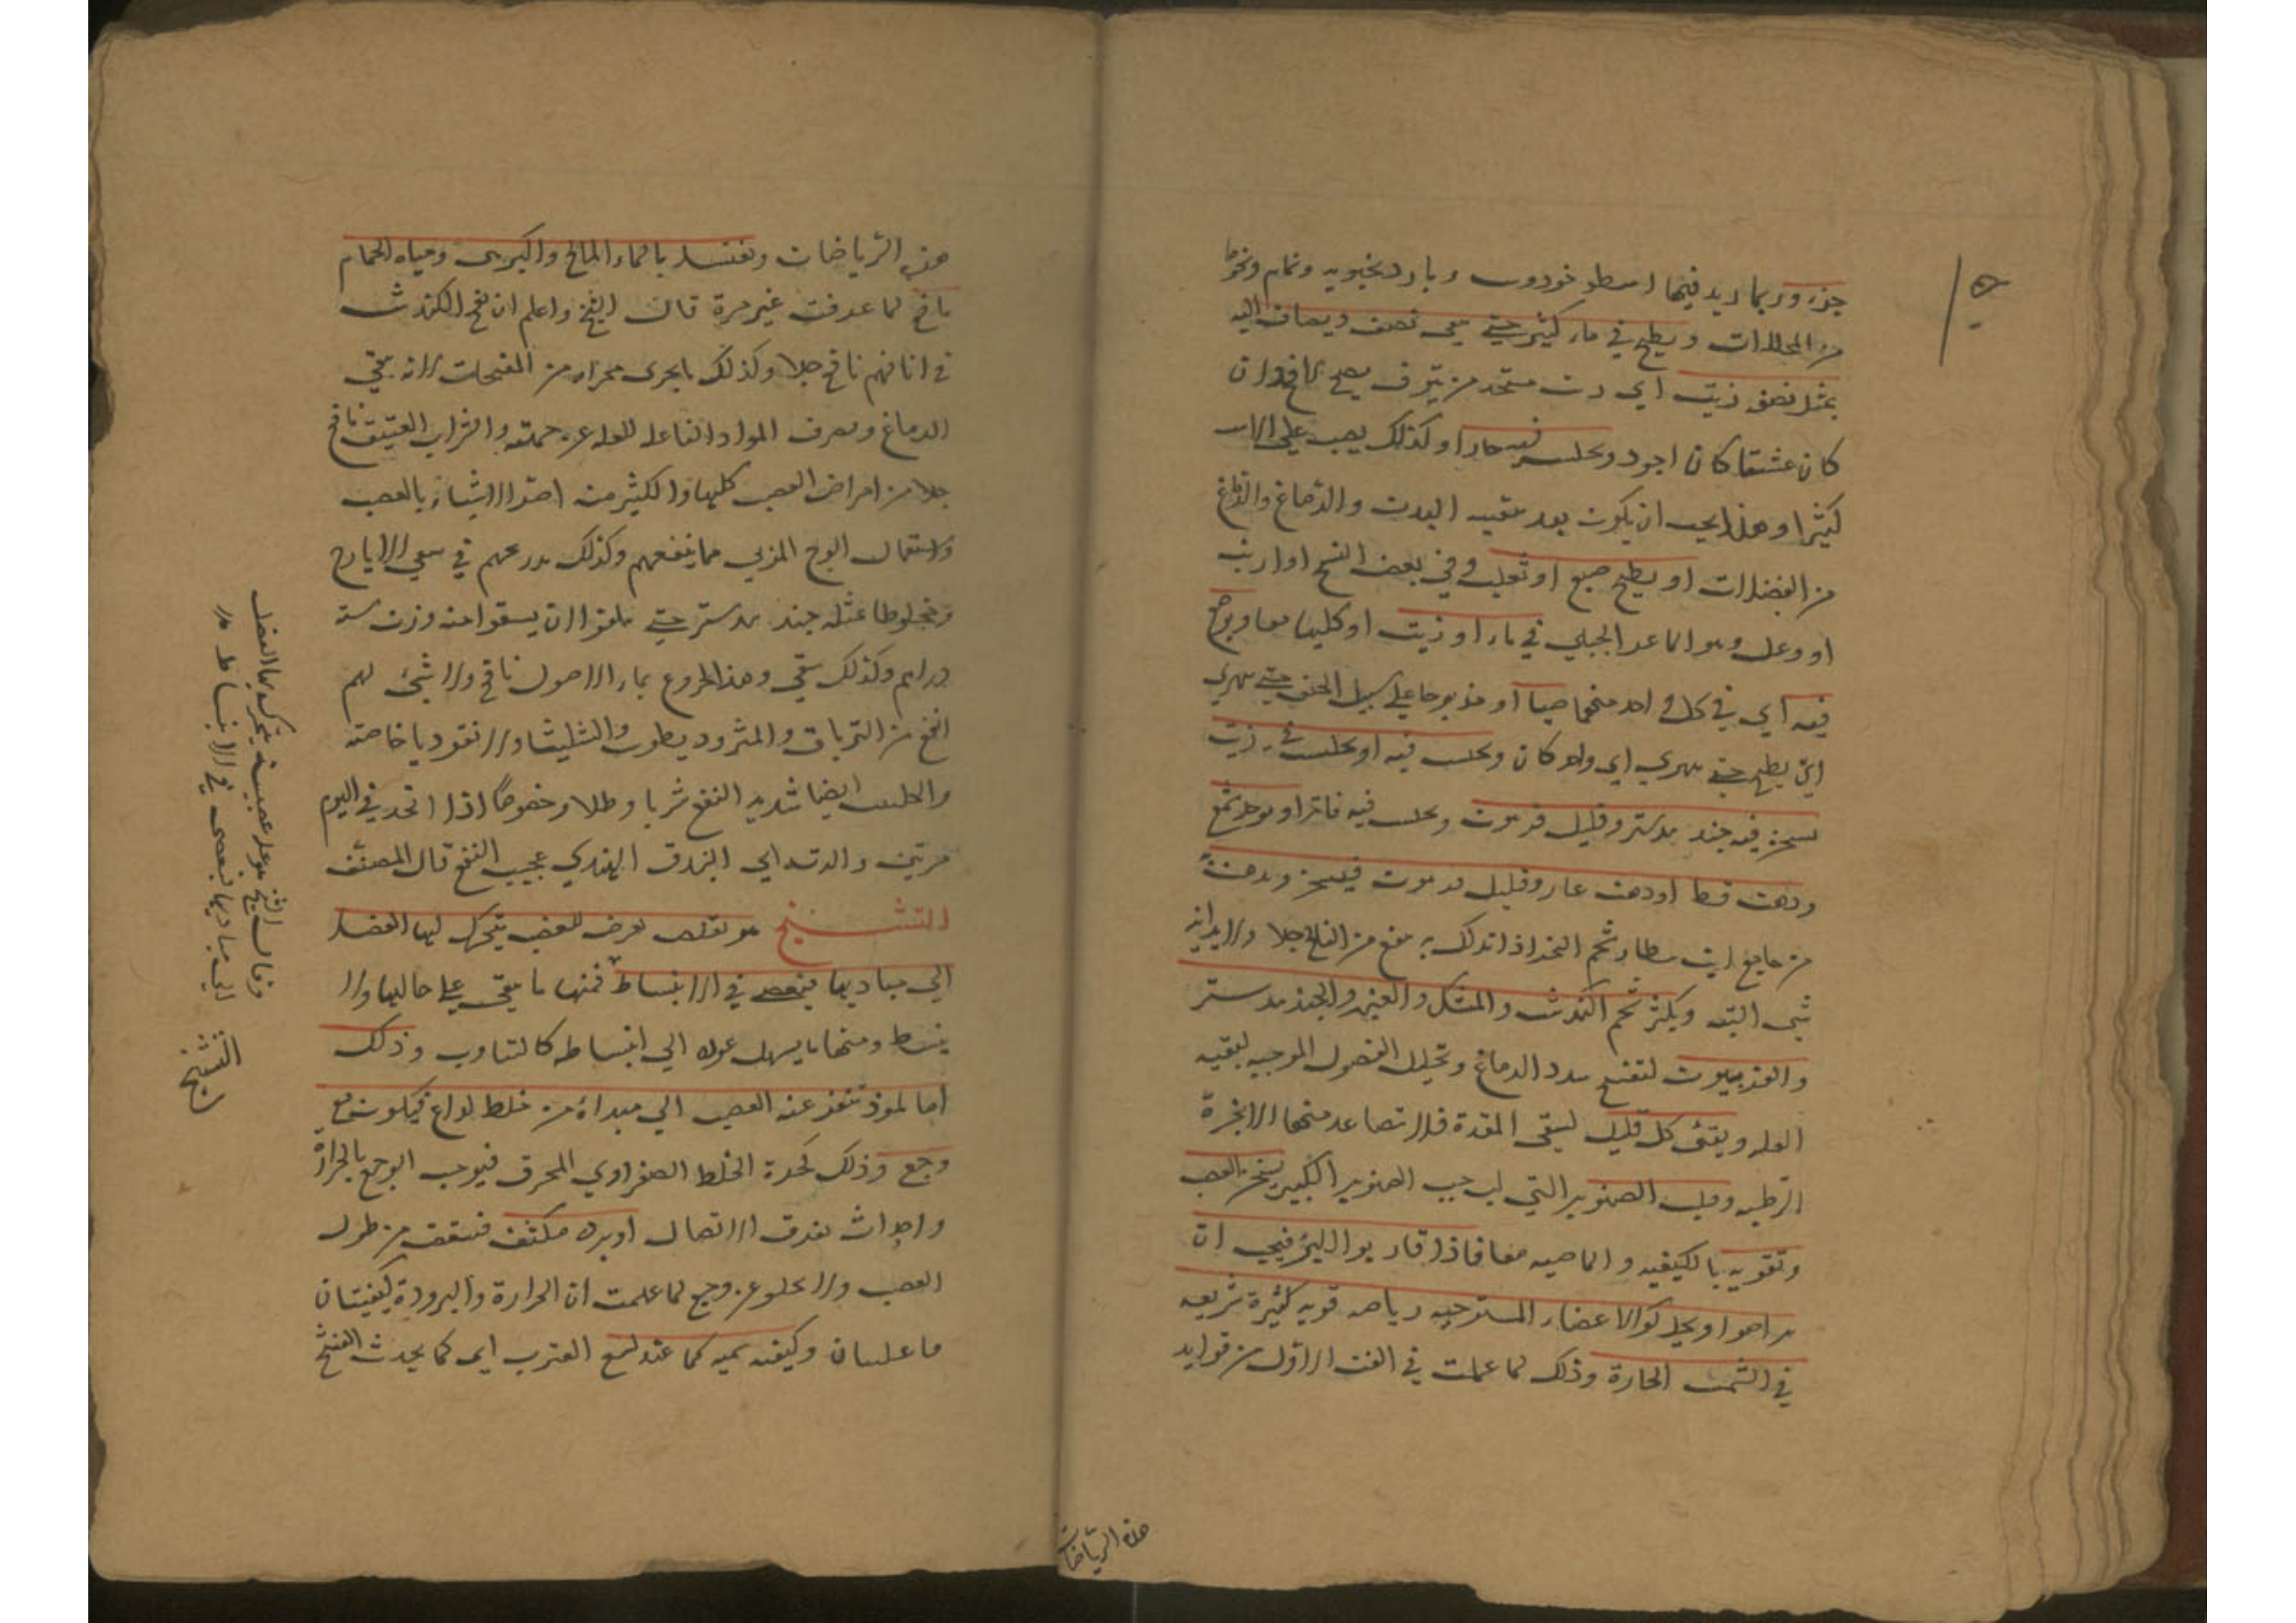 جزء وربما زيد فيها اسطوخودوس وبادرنجبويه ونمام ونحوها
من المحللات ويطبخ في ماء كثير حتى يبقى نصف ويضاف اليه
بمثل نصفه زيت اي دن متخذ من زيتون نافع وان
كان عتيقا كان اجود ويجلس فيه حارا وكذلك يصب على الراس
كثيرا وهذا يجب ان يكون بعد تنقيه البدن والدماغ والدماغ
من الفضلات او يطبخ ضبع او ثعلب وفي بعض النسخ او ارنب
او وعل وهو الماعد الجبلي في ماء او زيت او كليهما معا ويوضع
فيه اي في كل واحد منهما حيا او مذبوحا على سبيل الحتف حتى يهري
اي يطبخ حتى يهري اي واحد كان ويجلس فيه او يجلس في زيت
يسحق فيه جند بيدستر وقليل فربيون ويجلس فيه فاترا او يوخذ شمع
ودهن قسط او دهن غار وقليل فربيون فيسحق ويدهن به
من جامع ابن بيطار شحم النمر اذا دلك به ينفع من الفالج جدا ولا يدانيه
شي البته ويكثر شم الكندش والمسك والعنبر والجندبيدستر
والفربيون لتفتيح سدد الدماغ وتحليل الفضول الموجبه لبقيه
العله ويتقى كل قليل لينقي المعدة فلا تصاعد منها الابخرة
الرطبه وحب الصنوبر التي لب حب الصنوبر الكبير يسخن العصب
وتقويه بالكيفيه والخاصيه معا فاذا قاربوا البرء فيجب ان
يراضوا ويحركوا الاعضاء المسترخيه رياضه قويه كثيرة سريعه
في الشمس الحارة وذلك لما علمت في الفن الاول من فوايد
هذه الرياضات
هذه الرياضات ويغتسل بالماء المالح والكبريتي ومياه الحمام
نافع لما عرفت غير مرة قال الشيخ واعلم ان نفخ الكندش
في انافهم نافع جدا وكذلك ما يجري مجراه من المفتحات لانه ينقي
الدماغ ويصرف المواد الفاعله للعله عن جهته والشراب العتيق نافع
جدا من امراض العصب كلها والكثير منه اضر الاشياء بالعصب
واستعمال الوج المربى مما ينفعهم وكذلك تدرجهم في سقي الايارج
ومخلوطا بمثله جند بيدستر حتى يبلغوا ان يسقوا منه وزن ستة
دراهم وكذلك سقي دهن الخروع بماء الاصول نافع ولا شيئ لهم
انفع من الترياق والمثروديطوس والشليثا والانقرديا خاصته
والحلتيت ايضا شديد النفع شربا وطلاء وخصوصا اذا اتخذ في اليوم
مرتين والرته اي البندق الهندي عجيب النفع قال المصنف
التشنج هو تقلص يعرض للعصب يتحرك لها العضل
الى مباديها فيعصي في الانبساط فمنها ما يبقى على حالها ولا
ينبسط ومنها ما يسهل عوده الى انبساطه كالتثاوب وذلك
اما لموذ تنفر عنه العصب الى مبدائه من خلط لذاع فيكون مع
وجع وذلك لحدة الخلط الصفراوي المحرق فيوجب الوجع بالحرارة
واحداث تفرق الاتصال او برد مكثف فينقص من طول
العصب ولا يخلو عن وجع لما علمت ان الحرارة والبرودة كيفيتان
فاعلتان وكيفيه سميه كما عند لسع العقرب اي كما يحدث التشنج
وقال الشيخ هو عله عصبية يتحرك بها العضل
الى مباديها فيعصى في الانبساط
التشنج